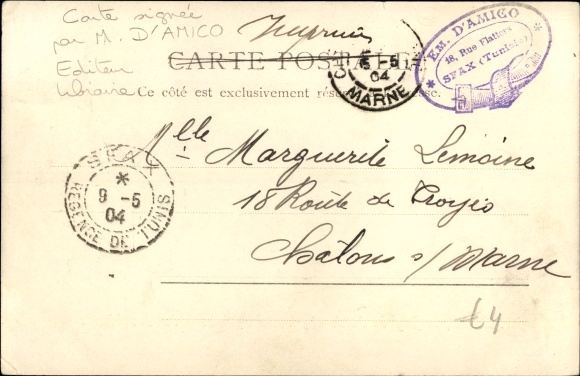 Carte signée
par M. D'AMICO
Editeur
libraire
Imprimés
CARTE POSTALE
Ce côté est exclusivement réservé à l'adresse.
5 -5
04
MARNE
EM. D'AMICO
18, Rue Flatters
SFAX (Tunisie)
Mlle Marguerite Lemoine
18 Route de Troyes
Châlons s/ Marne
SFAX
9 -5
04
REGENCE DE TUNIS
£4